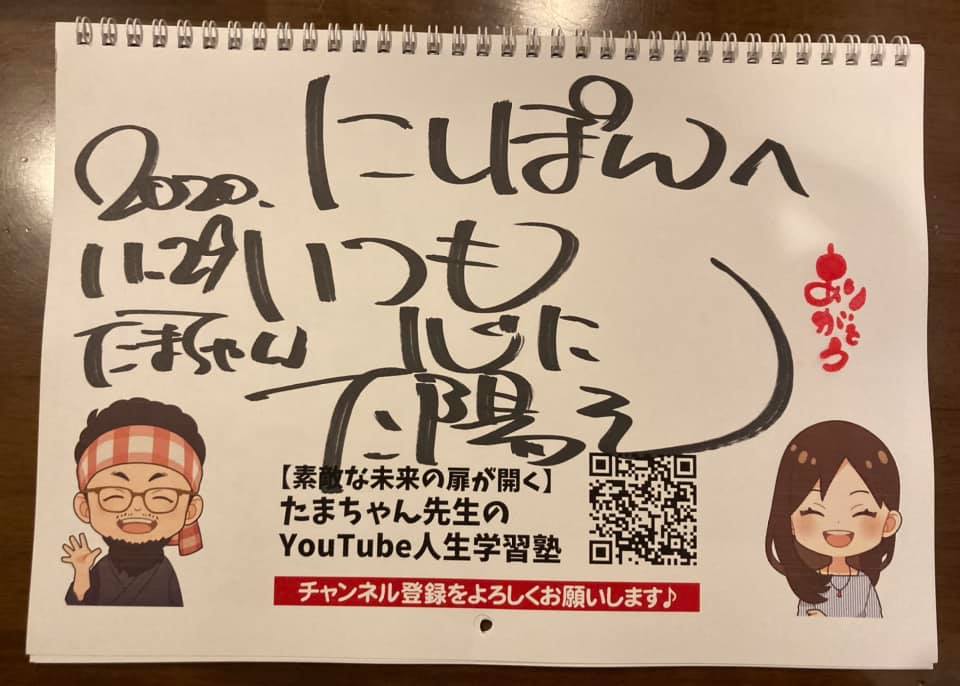 にしぽんへ
2020.
11.29
たまちゃん
いつも
心に
太陽を
ありがとう
【素敵な未来の扉が開く】
たまちゃん先生の
YouTube人生学習塾
チャンネル登録をよろしくお願いします♪